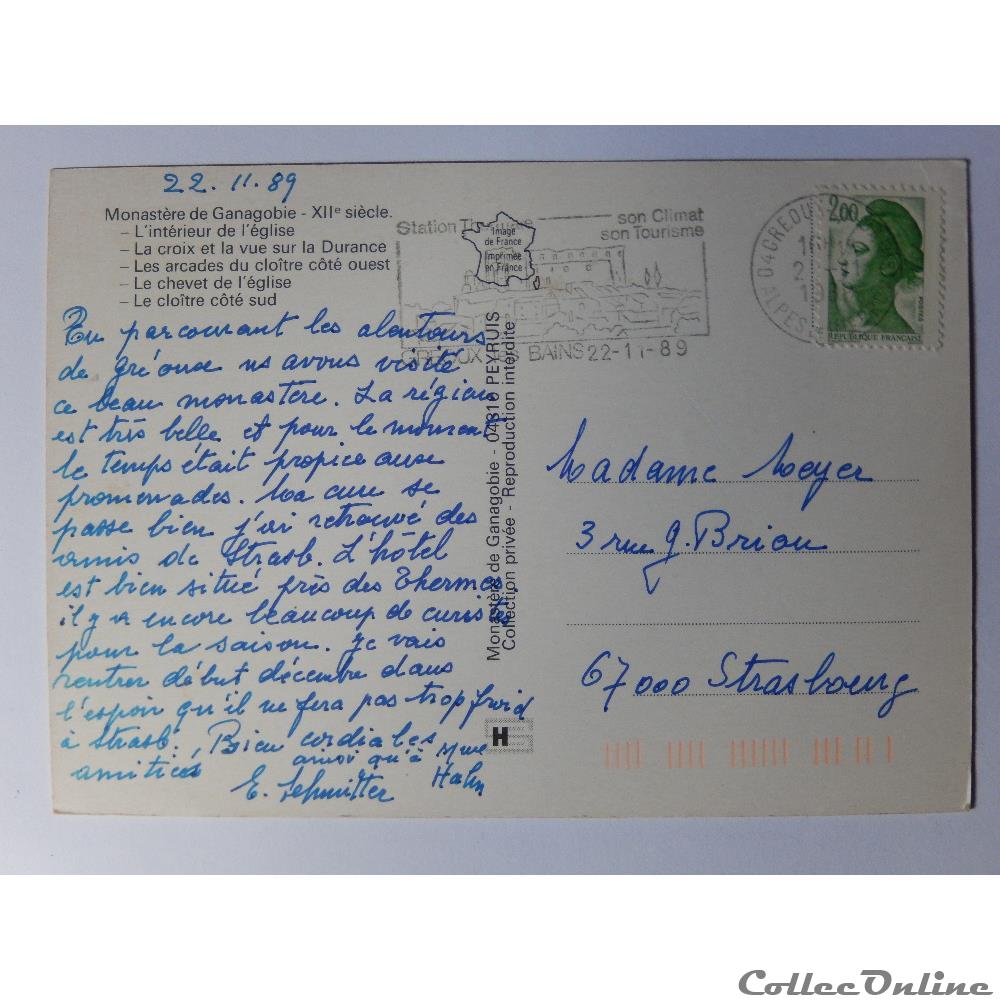 22.11.89
Monastère de Ganagobie - XIIe siècle.
– L'intérieur de l'église
– La croix et la vue sur la Durance
– Les arcades du cloître côté ouest
– Le chevet de l'église
– Le cloître côté sud
En parcourant les alentours
de gréoux ns avons visité
ce beau monastère. La région
est très belle et pour le moment
le temps était propice aux
promenades. La cure se
passe bien j'ai retrouvé des
amis de Strasb. L'hôtel
est bien situé près des Thermes
il y a encore beaucoup de curistes
pour la saison. Je vais
rentrer début décembre dans
l'espoir qu'il ne fera pas trop froid
à Strasb. Bien cordiales
amitiés ainsi qu'à Mme
Hahn
E. Schmitter
Monastère de Ganagobie - 04310 PEYRUIS
Collection privée - Reproduction interdite
Image
de France
Imprimée
en France
H
Station son Climat
son Tourisme
BAINS 22-11-89
04 GREOU
ALPES
2,00
POSTES
REPUBLIQUE FRANÇAISE
Madame Meyer
3 rue g. Brion
67000 Strasbourg
CollecOnline